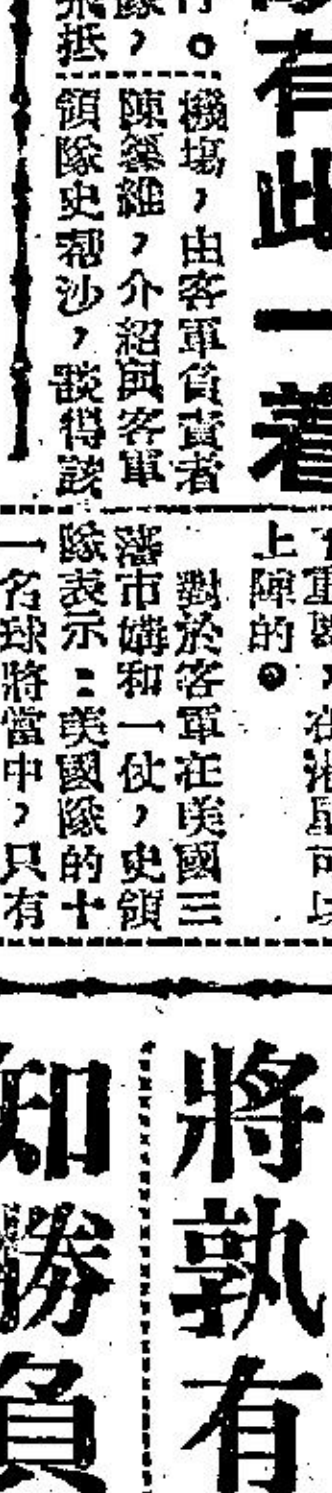 有此一着
機場，由客軍負責者
陳纂維，介紹與客軍
領隊史鄀沙，談得該
上陣的。
對於客軍在美國三
藩市媾和一仗，史領
隊表示：美國隊的十
一名球將當中，只有
將孰有
知勝負